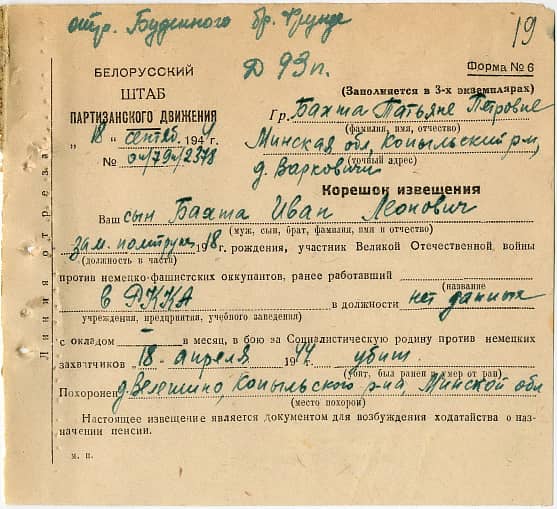 отр. Буденного бр. Фрунзе
19
Д 93 п.
Форма № 6
БЕЛОРУССКИЙ
ШТАБ
ПАРТИЗАНСКОГО ДВИЖЕНИЯ
„18“ сентяб 1944
№ 04/79п/2378
(Заполняется в 3-х экземплярах)
Гр. Бахта Татьяне Петровне
(фамилия, имя, отчество)
Минская обл, Копыльский р-н,
(точный адрес)
д. Варковичи
Корешок извещения
Ваш сын Бахта Иван Леонович
(муж, сын, брат, фамилия, имя и отчество)
зам. политрука 1918 г. рождения, участник Великой Отечественной войны
(должность в части)
против немецко-фашистских оккупантов, ранее работавший
(название
в РККА в должности нет данных
учреждения, предприятия, учебного заведения)
с окладом — в месяц, в бою за Социалистическую родину против немецких
захватчиков 18. апреля 1944 убит
(убит, был ранен и умер от ран)
Похоронен д. Велешино, Копыльского р-на, Минской обл
(место похорон)
Настоящее извещение является документом для возбуждения ходатайства о наз-
начении пенсии.
м. п.
Линия отреза